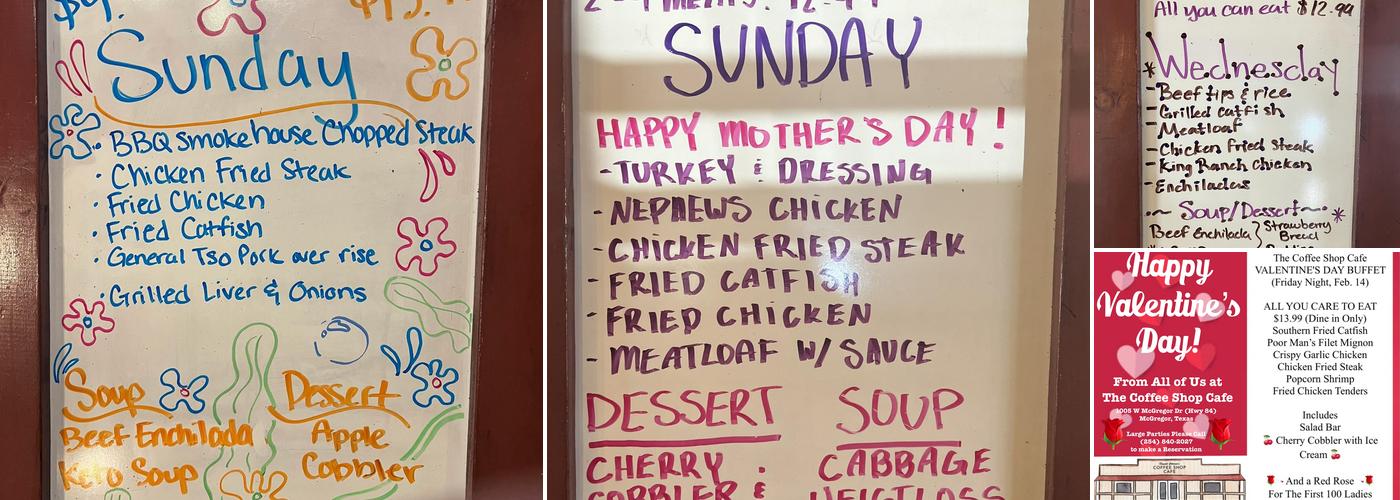 Sunday
BBQ Smokehouse Chopped Steak
Chicken Fried Steak
Fried Chicken
Fried Catfish
General Tso Pork over rise
Grilled Liver & Onions
Soup
Dessert
Beef Enchilada
Keto Soup
Apple
Cobbler
SUNDAY
HAPPY MOTHER'S DAY!
- TURKEY & DRESSING
- NEPHEWS CHICKEN
- CHICKEN FRIED STEAK
- FRIED CATFISH
- FRIED CHICKEN
- MEATLOAF W/ SAUCE
DESSERT
SOUP
CHERRY
COBBLER &
CABBAGE
All you can eat $12.99
*Wednesday
- Beef tips & rice
- Grilled catfish
- Meatloaf
- Chicken Fried Steak
- King Ranch Chicken
- Enchiladas
Soup/Dessert
Beef Enchilada
Strawberry
Bread
Happy
Valentine's
Day!
From All of Us at
The Coffee Shop Cafe
1005 W McGregor Dr (Hwy 84)
McGregor, Texas
Large Parties Please Call
(254) 840-2027
to make a Reservation
COFFEE SHOP
CAFE
The Coffee Shop Cafe
VALENTINE'S DAY BUFFET
(Friday Night, Feb. 14)
ALL YOU CARE TO EAT
$13.99 (Dine in Only)
Southern Fried Catfish
Poor Man's Filet Mignon
Crispy Garlic Chicken
Chicken Fried Steak
Popcorn Shrimp
Fried Chicken Tenders
Includes
Salad Bar
Cherry Cobbler with Ice
Cream
- And a Red Rose -
For The First 100 Ladies